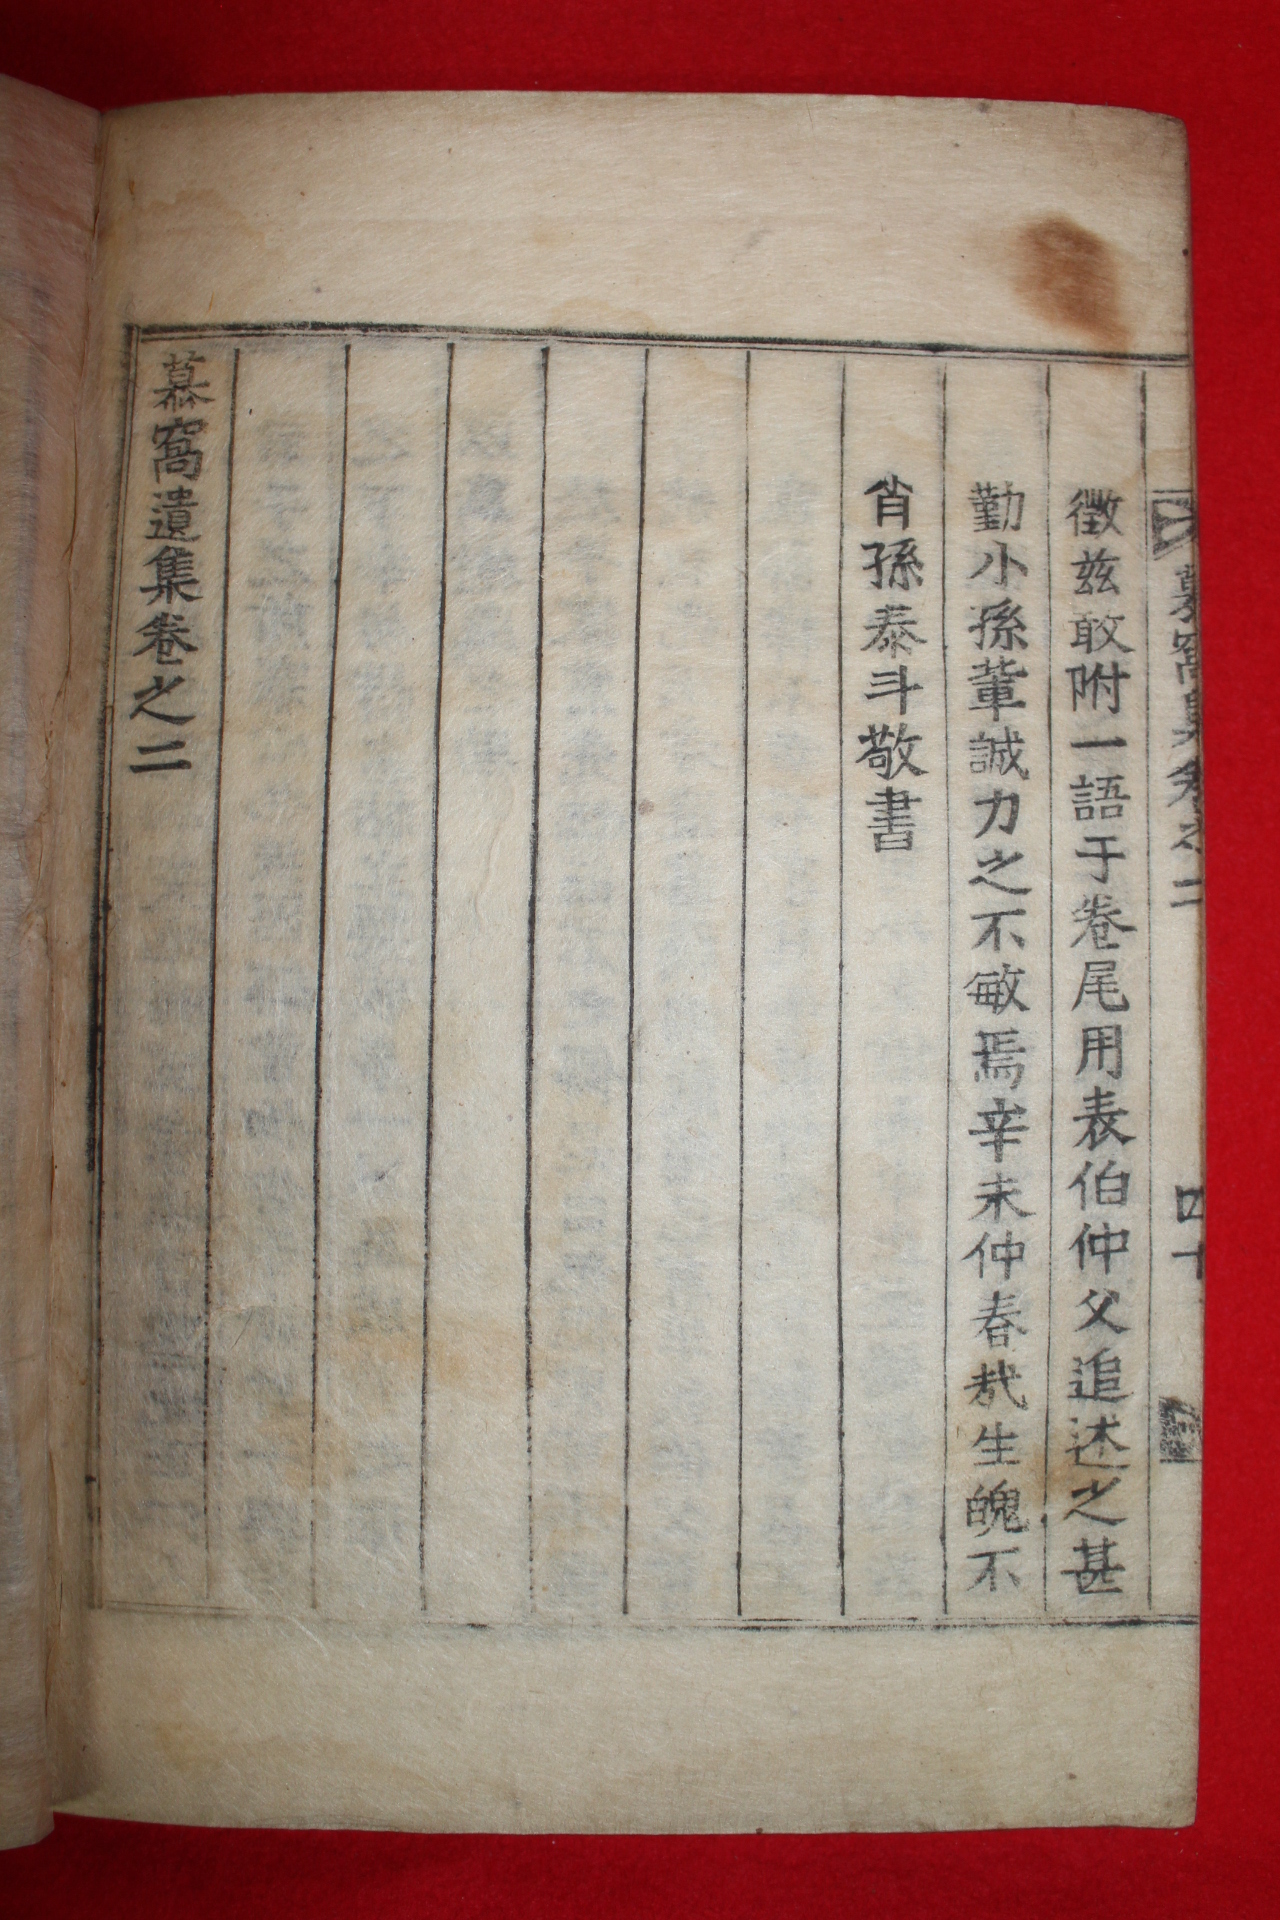 慕窩集卷之二
四十
徵玆敢附一語于卷尾用表伯仲父追述之甚
勤小孫輩誠力之不敏焉辛未仲春哉生魄不
肖孫泰斗敬書
慕窩遺集卷之二